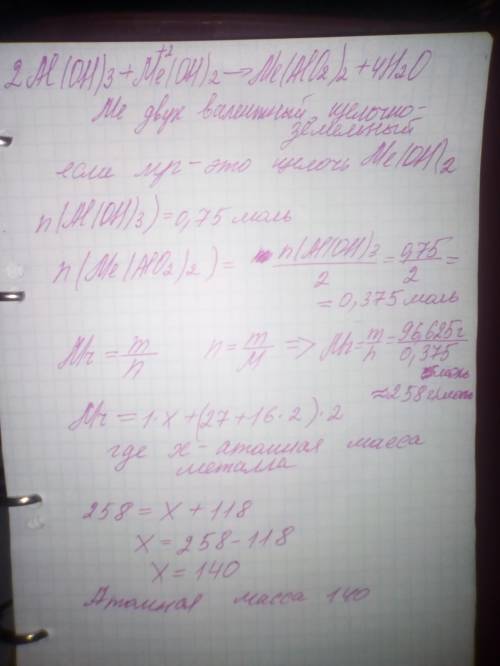 2Al(OH)3 + Me⁺²(OH)2 → Me(AlO2)2 + 4H2O
Me двух валентный щелочно-
земельный
если мр - это щелочь Me(OH)2
n(Al(OH)3) = 0,75 моль
n(Me(AlO2)2) = n(Al(OH)3 / 2 = 0,75 / 2 =
= 0,375 моль
Mr = m/n   n = m/M => Mr = m/n = 96,625г / 0,375 моль
≈ 258 г/моль
Mr = 1·x + (27+16·2)·2
где x - атомная масса
металла
258 = x + 118
x = 258 - 118
x = 140
Атомная масса 140